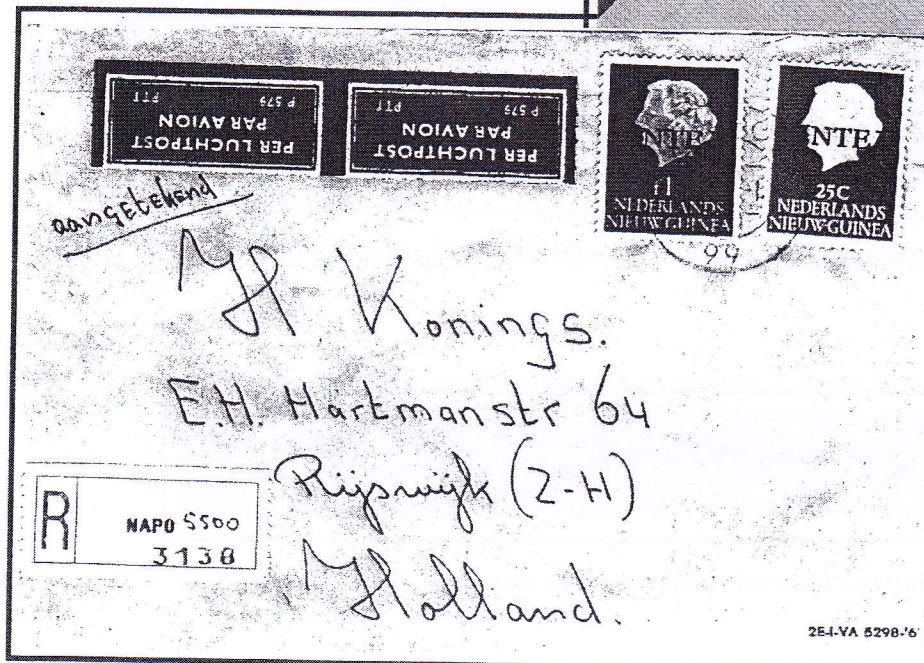 PER LUCHTPOST
PAR AVION
P 579 PTT
PER LUCHTPOST
PAR AVION
P 579 PTT
UNTEA
f1
NEDERLANDS
NIEUW-GUINEA
UNTEA
25C
NEDERLANDS
NIEUW-GUINEA
99
aangetekend
H Konings.
E.H. Hartmanstr 64
Rijswijk (Z-H)
Holland.
R
NAPO 5500
3138
2E4-VA 5298-'6